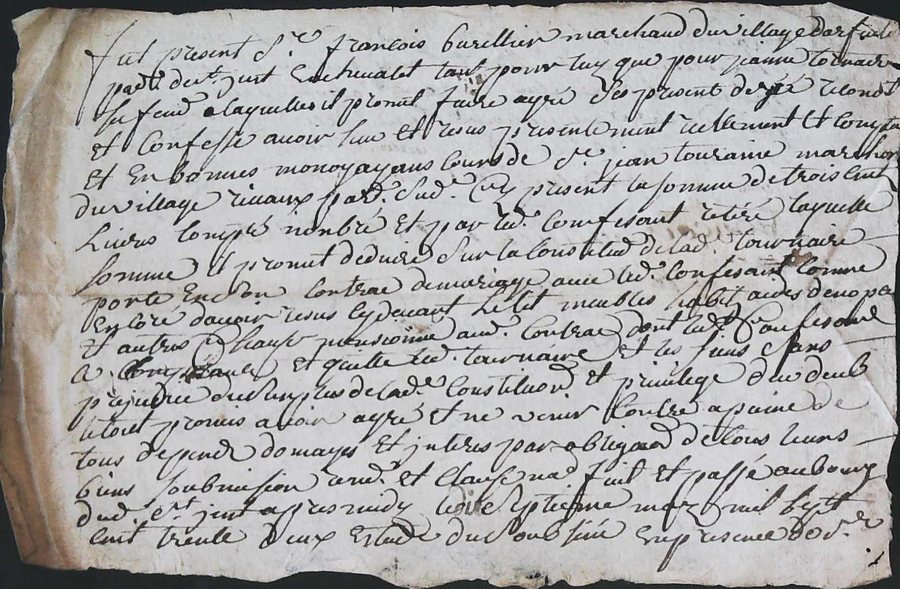 fut present Sr françois burellier marchand du village darfeuil
parr de st just en chevalet tant pour luy que pour jeanne tournaire
sa feme a laquelle il promet faire agré ces present de gré reconet
et confesse avoir heu et receu presentement reellement et comptant
et en bonnes monoy ayans cours de Sr jean touraine marchan
du village parr. Sud. Cy present la somme de trois cent
Livres compté nombré et par led. Confesant retiré laquelle
somme il promet deduire sur la Constituon de lad. tournaire
porté en son Contrac de mariage avec led. Confesant comme
encore davoir receu cy devant le lit meubles habit
et autres Chause mensionné aud. Contrac dont led. Confesant
et quitte led. tournaire et les siens sans
prejudice du surplus de lad. Constituon et privilege
promis avoir agré et ne venir Contre a paine de
tous depend domages et jnteres par obligaon de tous leurs
biens soubmision renon. et Clause na. fait et passé au bourg
dud. st just apres midy le dix septieme mar mil sept
Cent trente deux Estude du soubsiné en presence de Sr